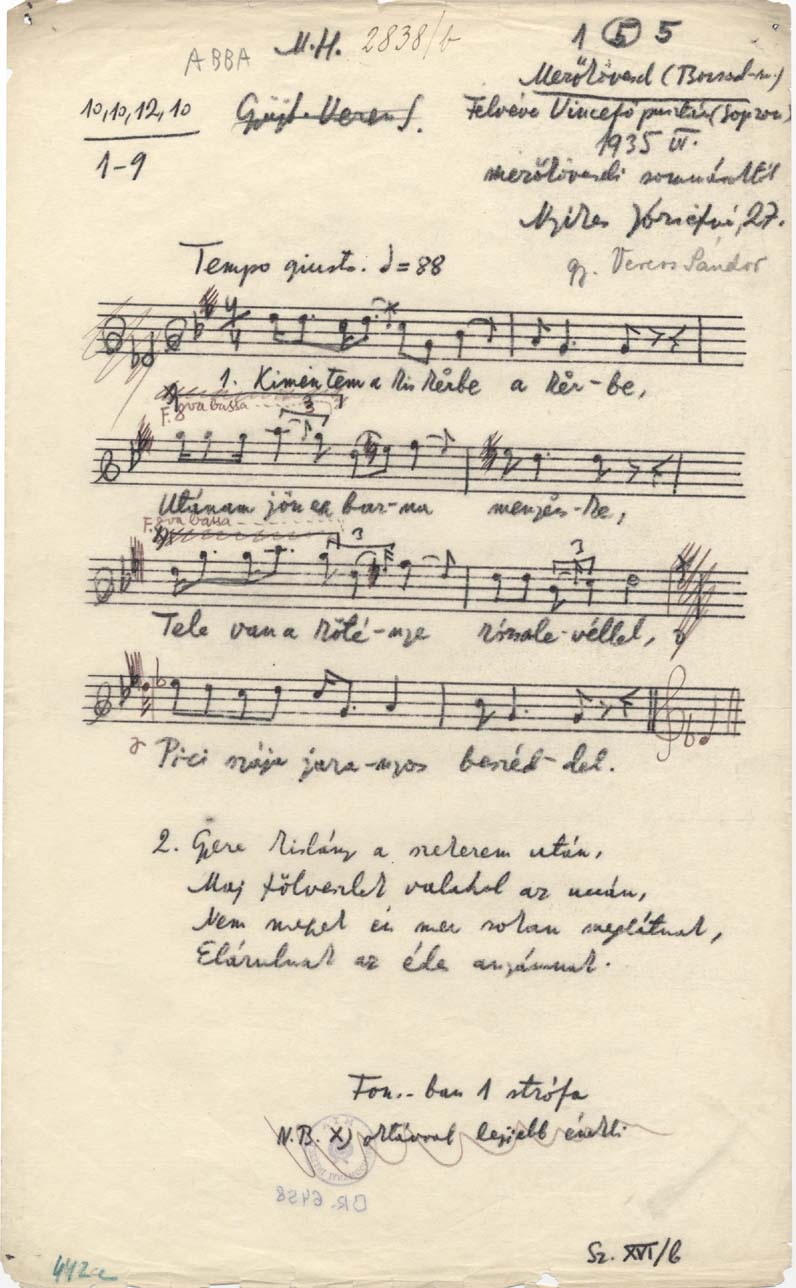 ABBA M.H. 2838/b 1 5 5
Mezőkövesd (Borsod-m.)
10,10,12,10 Gyűjt. Veress S. Felvéve Vincefő pusztán (Sopron)
1-9 1935 VI.
mezőkövesdi summástól
Nyikes Józsefné, 27.
Tempo giusto. = 88 gy. Veress Sándor
4
4
1. Kimentem a kis kërbe a kër-be,
F. 8va bassa 3
Utánam jön ea bar-na menyecs-ke,
F. 8va bassa 3 3
Tele van a köté-nye rózsale-véllel,
Pi-ci szája jara-nyos beszéd-del.
2. Gyere kislány a szekerem után,
Maj fölveszlek valahol az uccán,
Nem merek én mer sokan meglátnak,
Elárulnak az édes anyámnak.
Fon.-ban 1 strófa
N.B. X) oktávval lejjebb énekli
DR. 6458
442a Sz. XVI/b